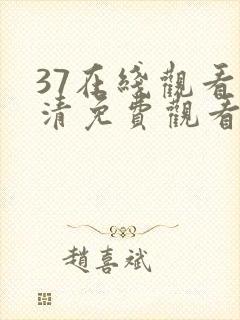 37在綫觀看
清免費觀看
趙喜斌